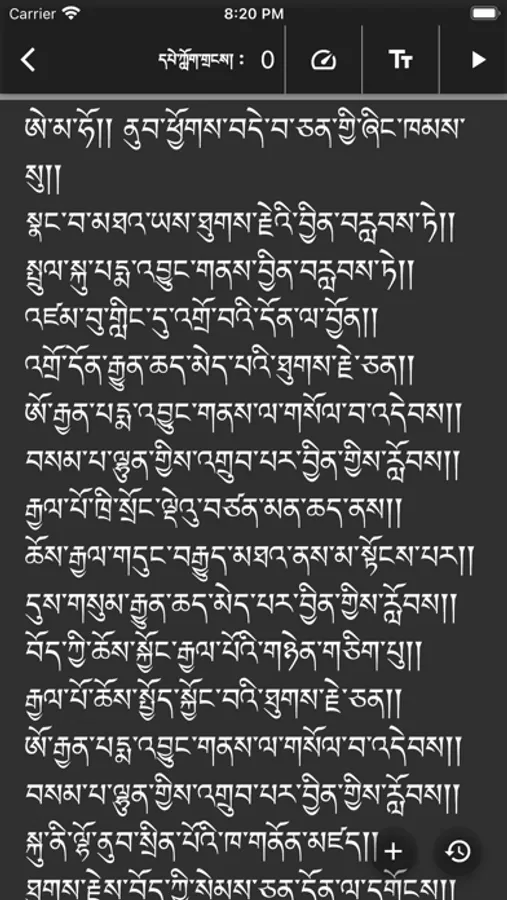 Carrier 8:20 PM
དཔེ་ཀློག་གྲངས། : 0 TT
ཨེ་མ་ཧོ།། ནུབ་ཕྱོགས་བདེ་བ་ཅན་གྱི་ཞིང་ཁམས་
སུ།།
སྣང་བ་མཐའ་ཡས་ཐུགས་རྗེའི་བྱིན་བརླབས་ཏེ།།
སྤྲུལ་སྐུ་པདྨ་འབྱུང་གནས་བྱིན་བརླབས་ཏེ།།
འཛམ་བུ་གླིང་དུ་འགྲོ་བའི་དོན་ལ་བྱོན།།
འགྲོ་དོན་རྒྱུན་ཆད་མེད་པའི་ཐུགས་རྗེ་ཅན།།
ཨོ་རྒྱན་པདྨ་འབྱུང་གནས་ལ་གསོལ་བ་འདེབས།།
བསམ་པ་ལྷུན་གྱིས་འགྲུབ་པར་བྱིན་གྱིས་རློབས།།
རྒྱལ་པོ་ཁྲི་སྲོང་ལྡེའུ་བཙན་མན་ཆད་ནས།།
ཆོས་རྒྱལ་གདུང་བརྒྱུད་མཐའ་ནས་མ་སྟོངས་པར།།
དུས་གསུམ་རྒྱུན་ཆད་མེད་པར་བྱིན་གྱིས་རློབས།།
བོད་ཀྱི་ཆོས་སྐྱོང་རྒྱལ་པོའི་གཉེན་གཅིག་པུ།།
རྒྱལ་པོ་ཆོས་སྤྱོད་སྐྱོང་བའི་ཐུགས་རྗེ་ཅན།།
ཨོ་རྒྱན་པདྨ་འབྱུང་གནས་ལ་གསོལ་བ་འདེབས།།
བསམ་པ་ལྷུན་གྱིས་འགྲུབ་པར་བྱིན་གྱིས་རློབས།།
སྐུ་ནི་ལྷོ་ནུབ་སྲིན་པོའི་ཁ་གནོན་མཛད།།
ཐུགས་རྗེས་བོད་ཀྱི་སེམས་ཅན་དོན་ལ་དགོངས།།